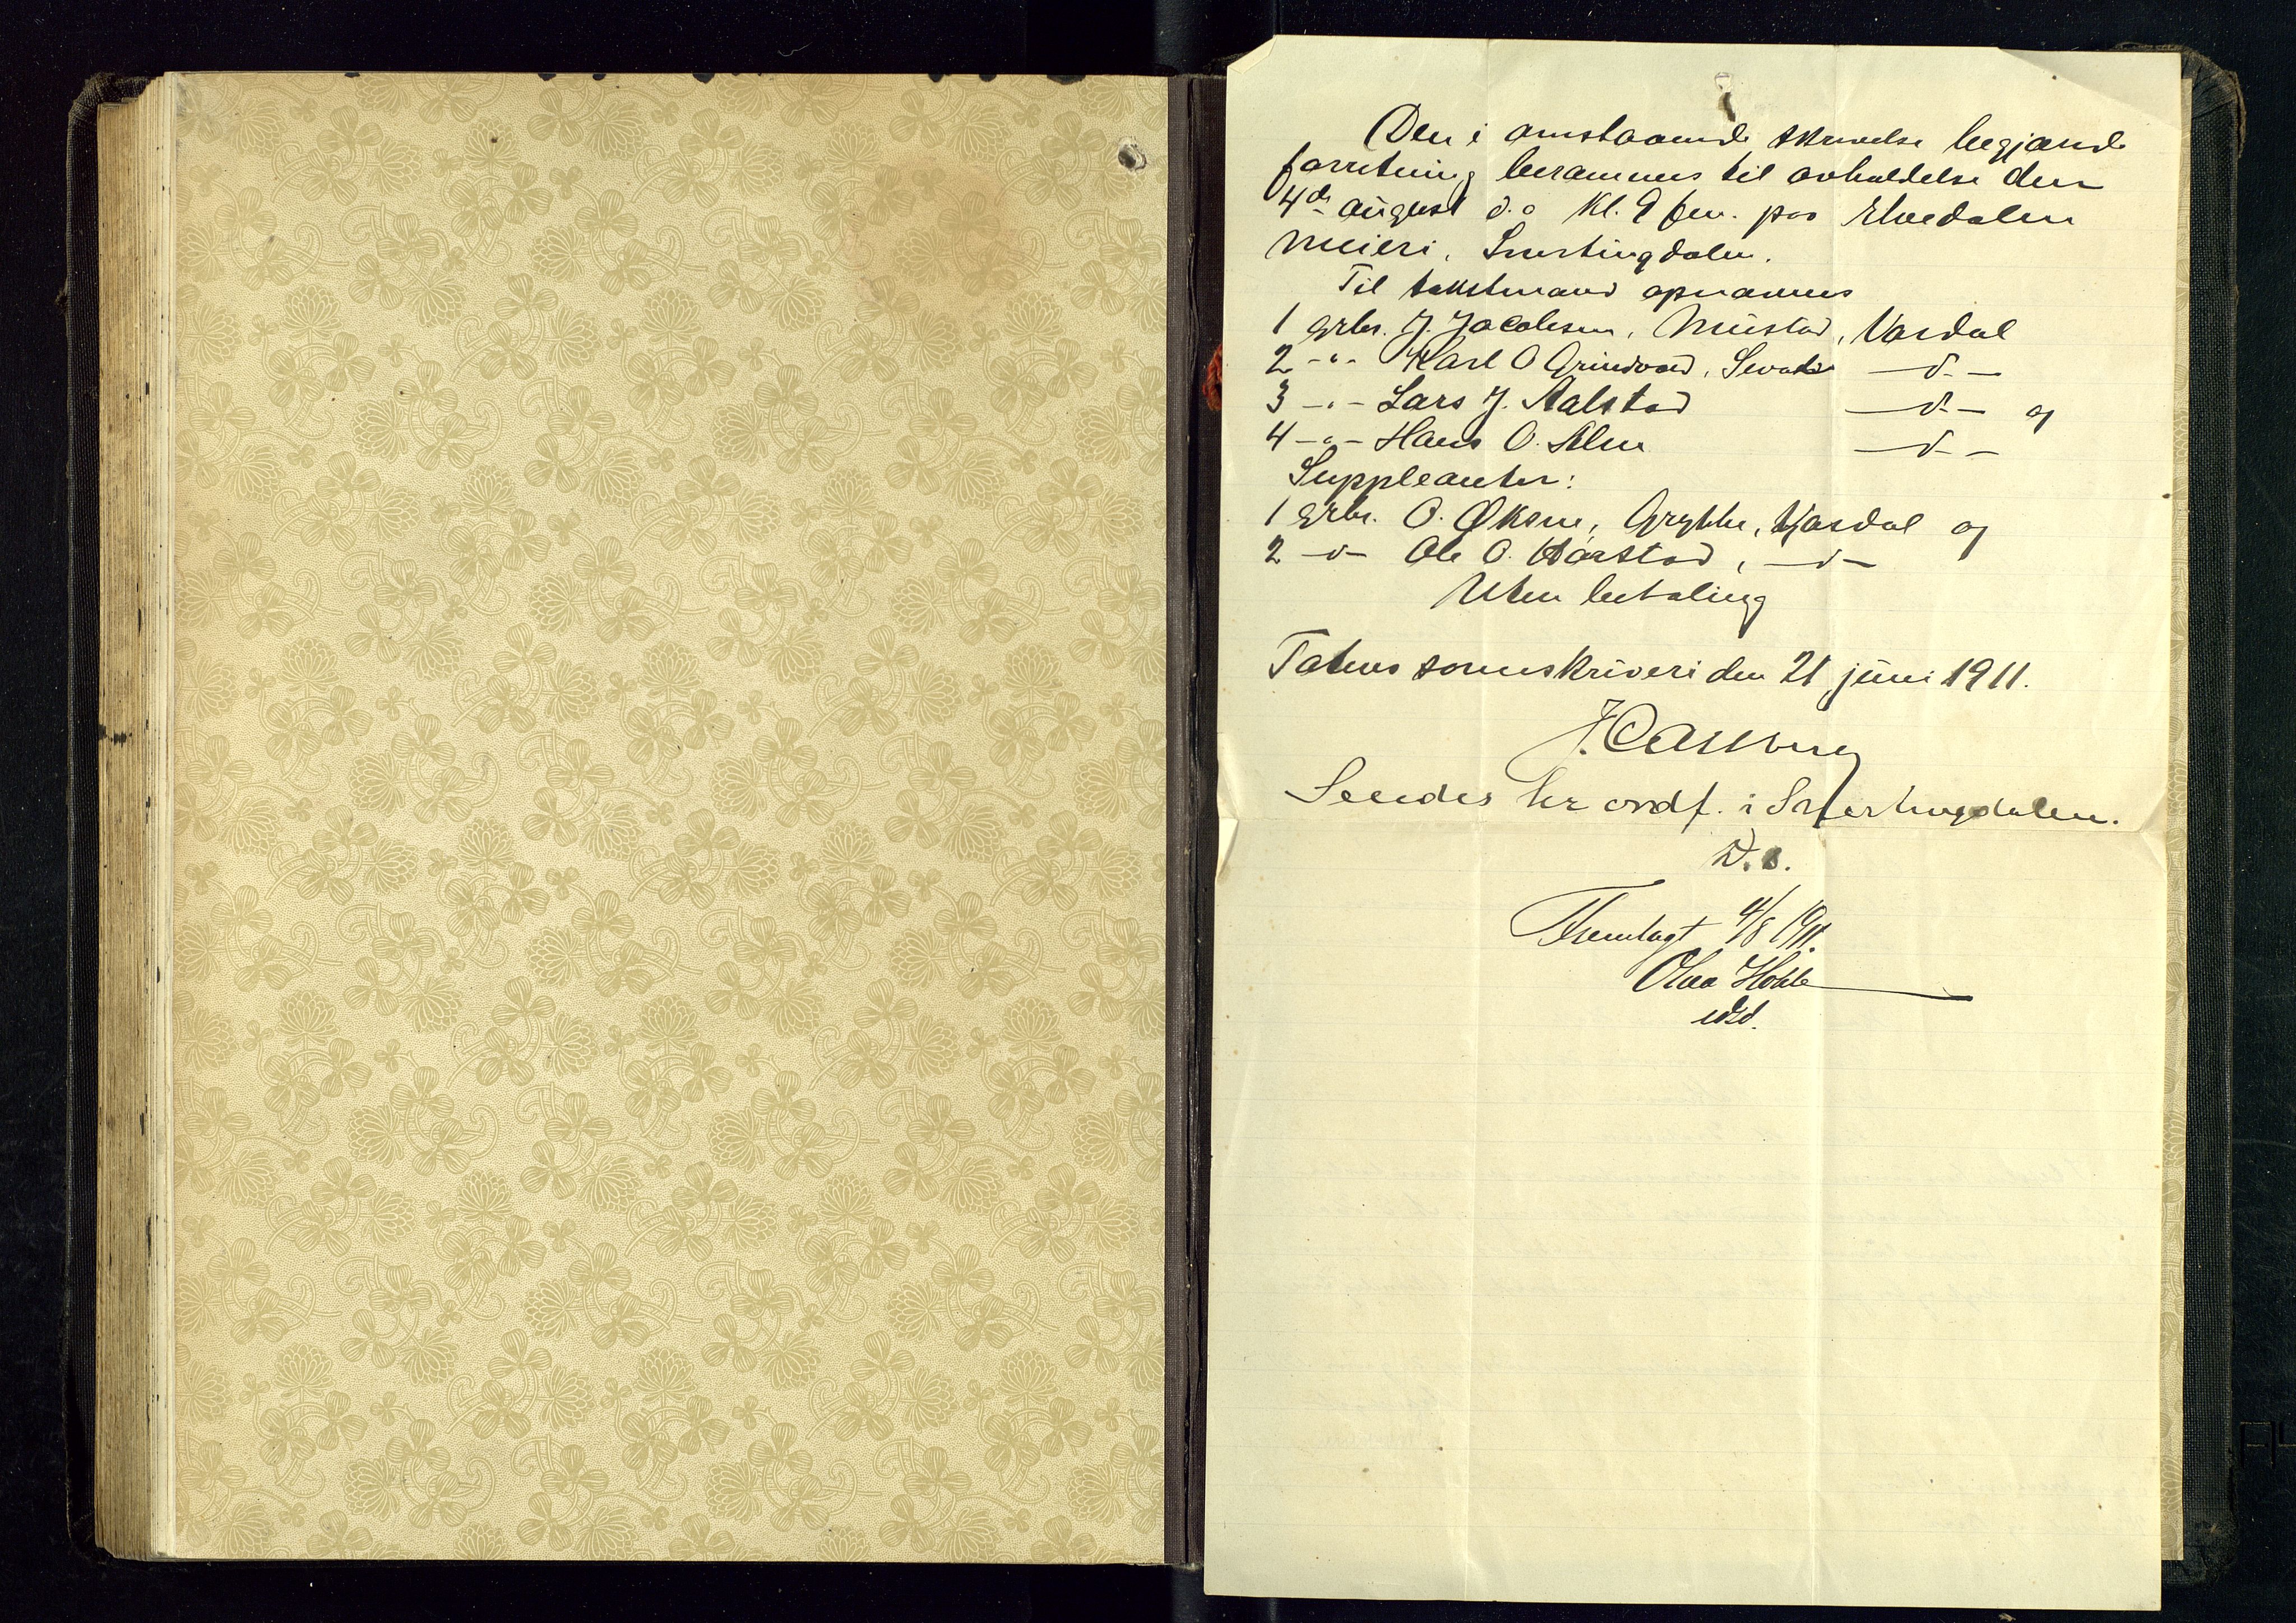 Den i omstaaende skrivelse begjærede
forretning berammes til avholdelse den
4de august d.a kl. 9 fm. paa Elvedalen
meieri, Snertingdalen.
Til takstmænd opnævnes
1 grbr. J. Jacobsen, Mustad, Vardal
2 -"- Karl O Grindvold, -d-
3 -"- Lars J. Aalstad -d- og
4 -"- Hans O. Alm -d-
Suppleanter:
1 grbr. O. Øksne, Grythe, Vardal og
2 -d- Ole O. Haarstad, -d-
Uten betaling
Totens sorenskriveri den 21 juni 1911.
Sendes hr ordf. i Snertingdalen.
D.s.
Fremlagt 4/8 1911.